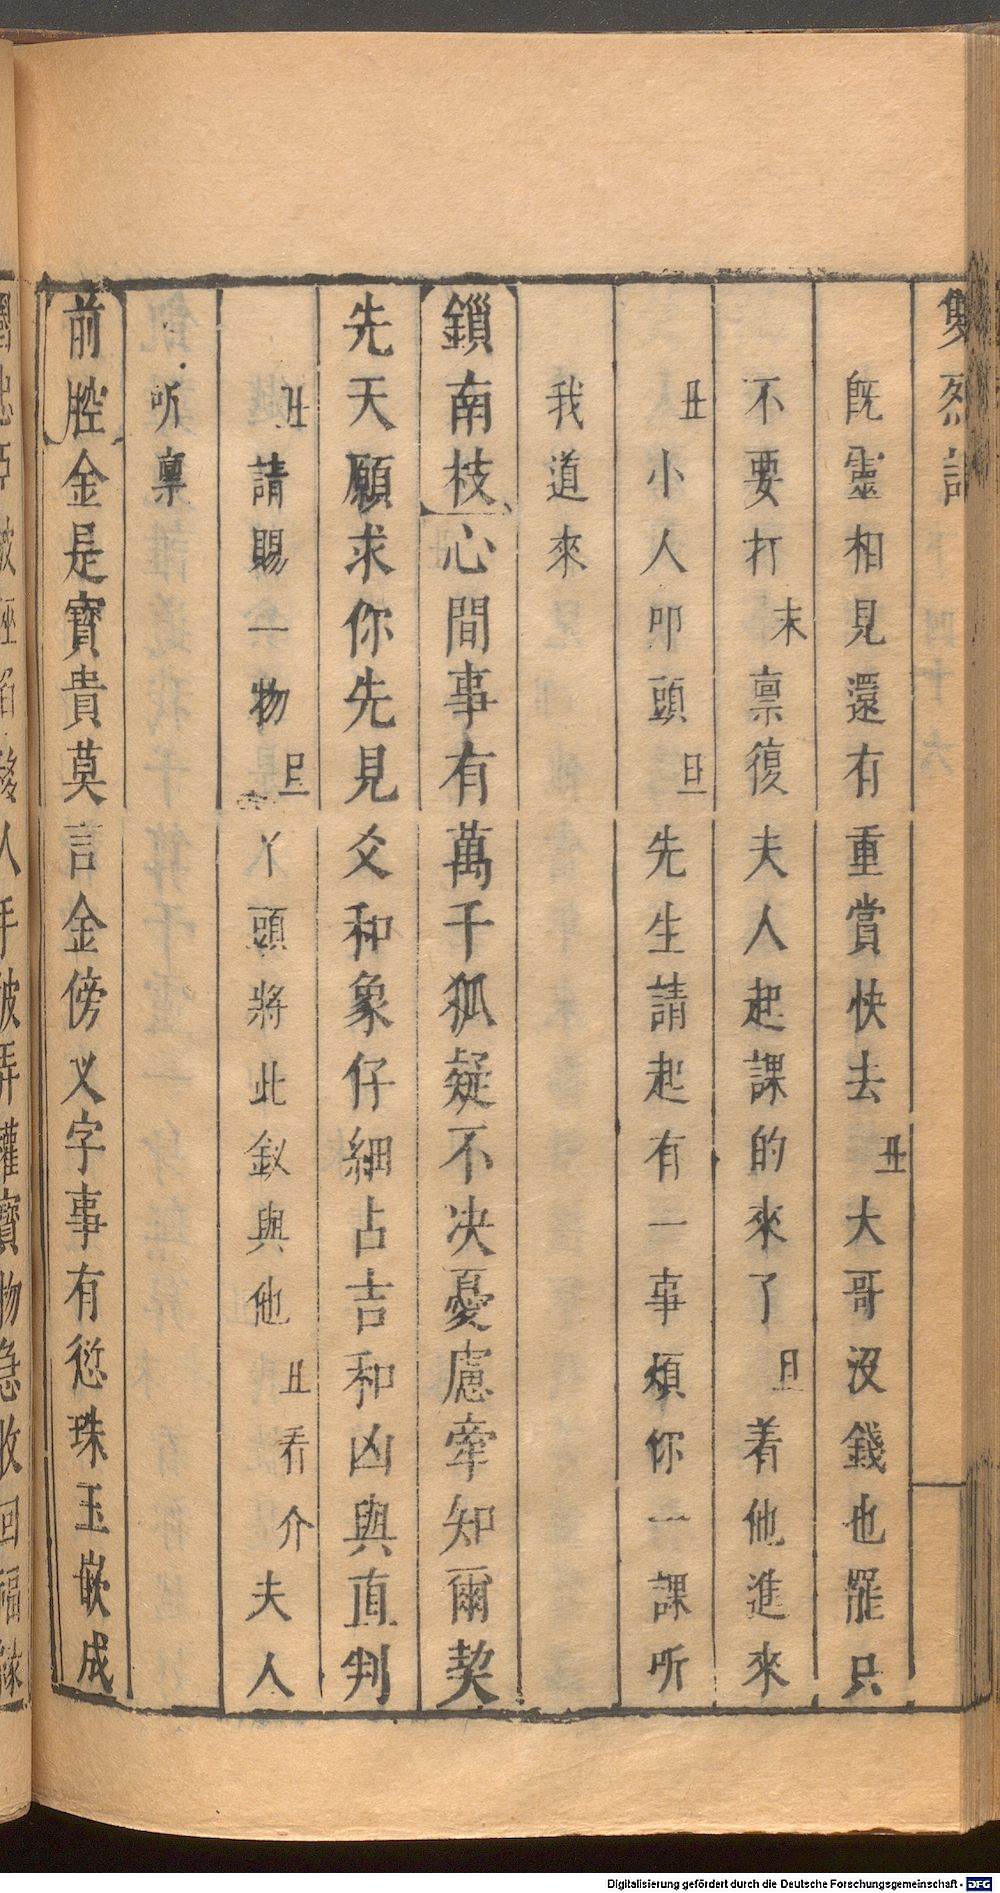 雙烈記
既靈相見還有重賞快去丑大哥沒錢也罷只
不要打末禀復夫人起課的來了旦着他進來
丑小人叩頭旦先生請起有一事煩你一課听
我道來
鎻南枝心間事有萬千狐疑不决憂慮牽知爾契
先天願求你先見爻和象仔細占吉和凶與直判
丑請賜一物旦丫頭將此釵與他丑看介夫人
听禀
前腔金是寳貴莫言金傍义字事有愆珠玉嵌成
人手被弄權寳物急收回福緣
Digitalisierung gefördert durch die Deutsche Forschungsgemeinschaft - DFG